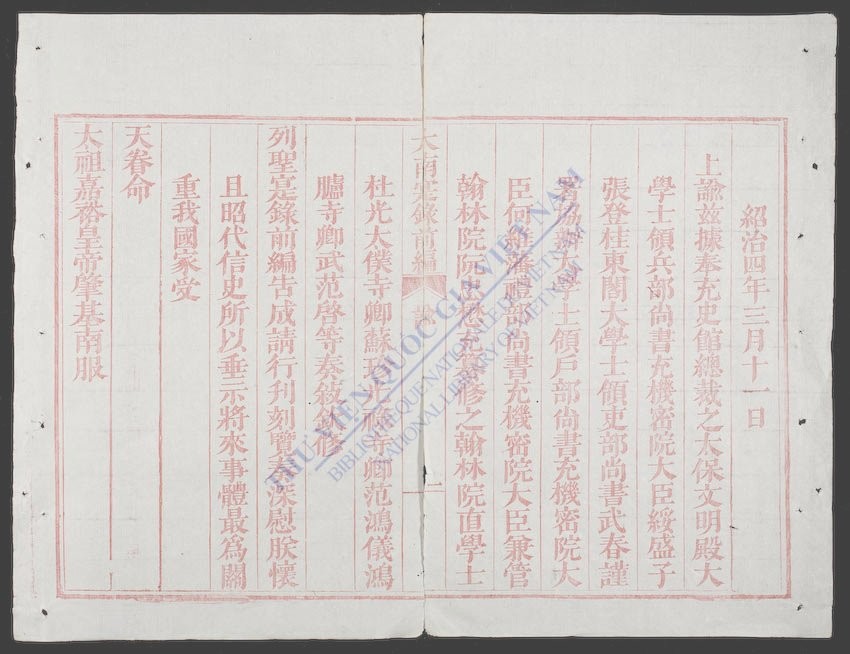 紹治四年三月十一日
上諭茲據奉充史館總裁之太保文明殿大
學士領兵部尚書充機密院大臣綏盛子
張登桂東閣大學士領吏部尚書武春謹
署協辦大學士領戶部尚書充機密院大
臣何維藩禮部尚書充機密院大臣兼管
翰林院阮忠懋充纂修之翰林院直學士
大南寔錄前編 一
杜光太僕寺卿蘇珍光祿寺卿范鴻儀鴻
臚寺卿武范啓等奏敍纂修
列聖寔錄前編告成請行刊刻覽奏深慰朕懷
且昭代信史所以垂示將來事體最爲關
重我國家受
天眷命
太祖嘉裕皇帝肇基南服
THƯ VIỆN QUỐC GIA VIỆT NAM
BIBLIOTHEQUE NATIONALE DU VIETNAM
NATIONAL LIBRARY OF VIETNAM